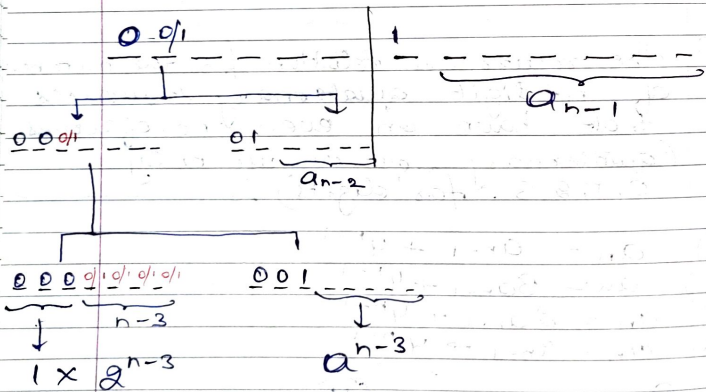 0 0/1 1
a_{n-1}
0 0 0/1 0 1
a_{n-2}
0 0 0 0/1 0/1 0/1 0/1 0 0 1
n-3
1 × 2^{n-3} a^{n-3}